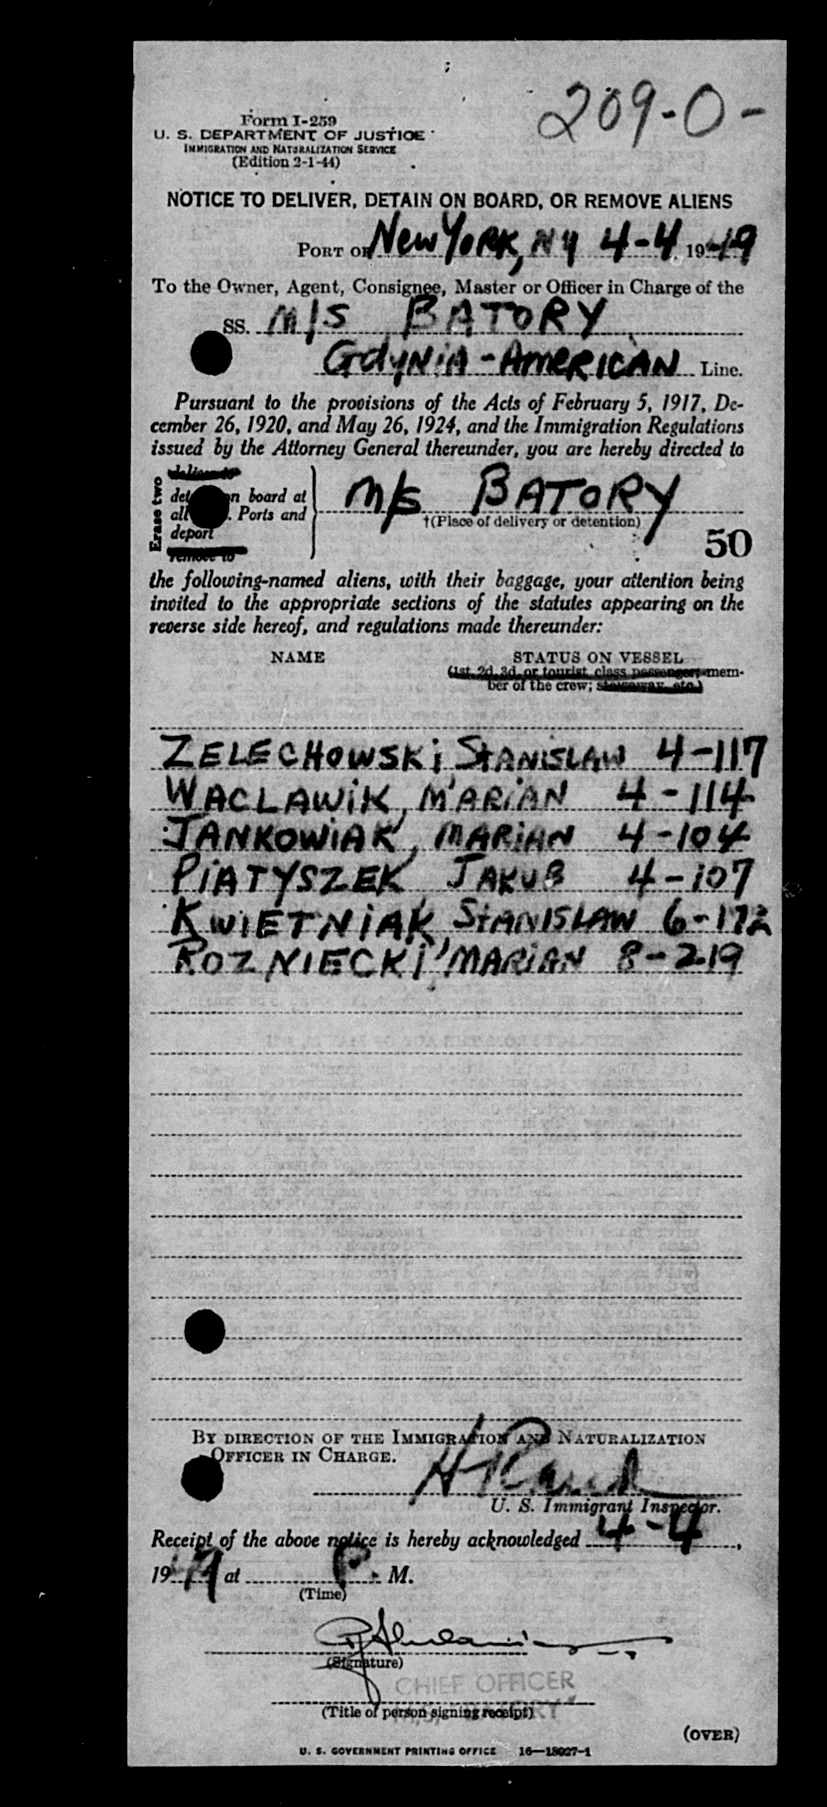 209-0-
Form I-259
U. S. DEPARTMENT OF JUSTICE
IMMIGRATION AND NATURALIZATION SERVICE
(Edition 2-1-44)
NOTICE TO DELIVER, DETAIN ON BOARD, OR REMOVE ALIENS
PORT OF New York, NY 4-4 1949
To the Owner, Agent, Consignee, Master or Officer in Charge of the
SS. M/S BATORY
GdyNiA-AmericAN Line.
Pursuant to the provisions of the Acts of February 5, 1917, De-
cember 26, 1920, and May 26, 1924, and the Immigration Regulations
issued by the Attorney General thereunder, you are hereby directed to
Erase two
deliver to
det n board at
all . Ports and
deport
remove to
M/s BATORY
†(Place of delivery or detention)
50
the following-named aliens, with their baggage, your attention being
invited to the appropriate sections of the statutes appearing on the
reverse side hereof, and regulations made thereunder:
NAME STATUS ON VESSEL
(1st, 2d, 3d, or tourist class passenger; mem-
ber of the crew; stowaway, etc.)
ZELECHOWSKi STANISLAW 4-117
WACLAWiK, MARiAN 4-114
JANKOWiAK, MARiAN 4-104
PiATYSZEK JAKUB 4-107
KWIETNiAK STANISLAW 6-172
ROZNIECKi MARiAN 8-219
BY DIRECTION OF THE IMMIGRATION AND NATURALIZATION
OFFICER IN CHARGE.
U. S. Immigrant Inspector.
Receipt of the above notice is hereby acknowledged 4-4,
1949 at P. M.
(Time)
(Signature)
CHIEF OFFICER
(Title of person signing receipt)
(OVER)
U. S. GOVERNMENT PRINTING OFFICE 16—18027-1